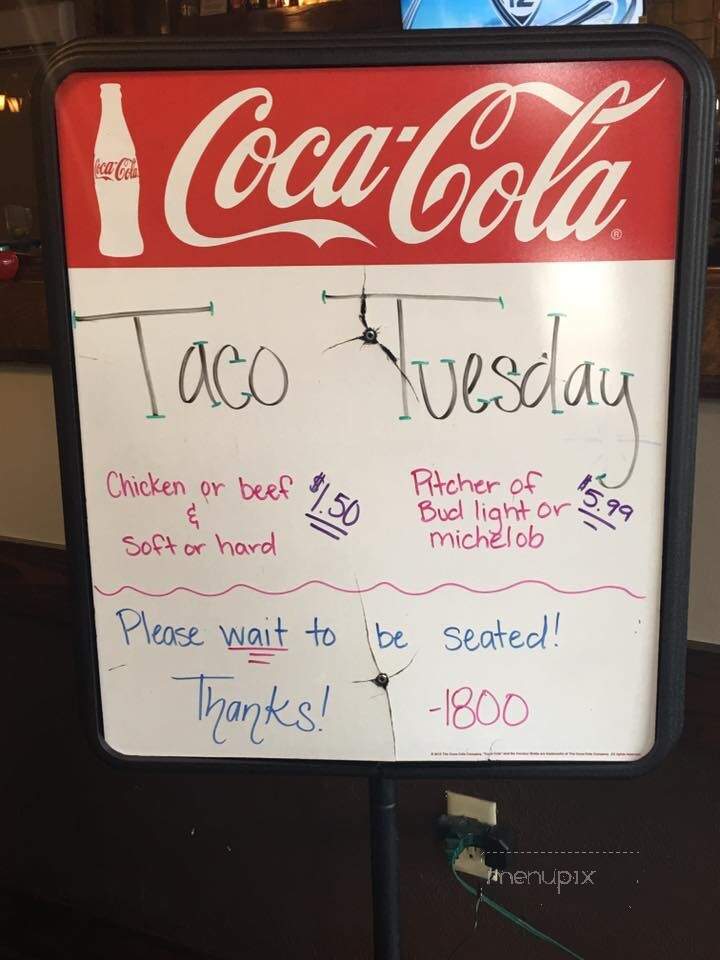 12
Coca-Cola
Coca-Cola®
Taco Tuesday
Chicken or beef $1.50
&
Soft or hard
Pitcher of
Bud light or $5.99
michelob
Please wait to be seated!
Thanks! -1800
menupix